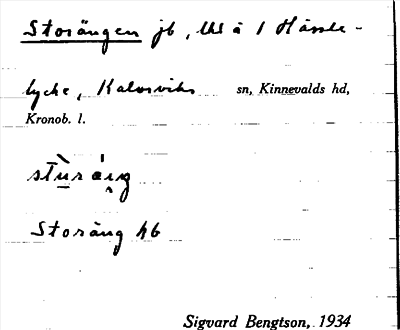 Storängen jb, på 1 Hässle-
lycke, Kalvsviks sn, Kinnevalds hd,
Kronob. l.
Storäng hb
Sigvard Bengtson, 1934